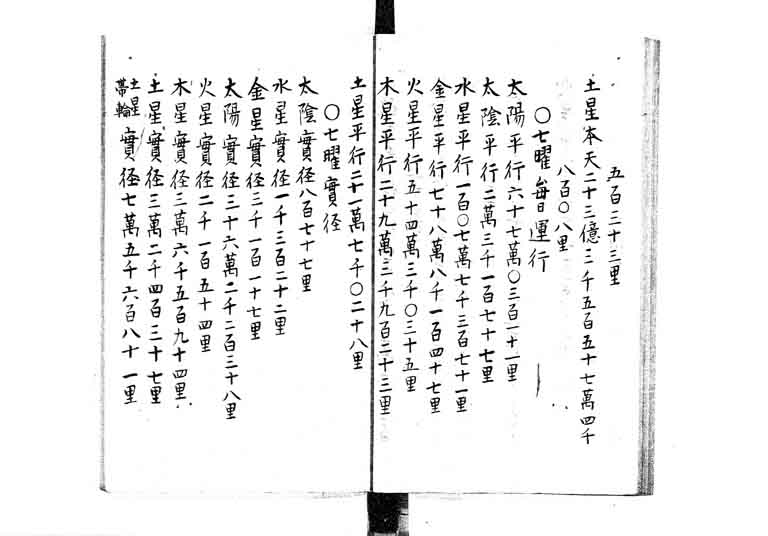 五百三十三里
土星本天二十三億三千五百五十七萬四千
八百〇八里
〇七曜每日運行
太陽平行六十七萬〇三百一十一里
太陰平行二萬三千一百七十七里
水星平行一百〇七萬七千三百七十一里
金星平行七十八萬八千一百四十七里
火星平行五十四萬三千〇三十五里
木星平行二十九萬三千九百二十三里
土星平行二十一萬七千〇二十八里
〇七曜實径
太陰實径八百七十七里
水星實径一千三百二十二里
金星實径三千一百一十七里
太陽實径三十六萬二千二百三十八里
火星實径二千一百五十四里
木星實径三萬六千五百九十四里
土星實径三萬二千四百三十七里
土星帯輪實径七萬五千六百八十一里